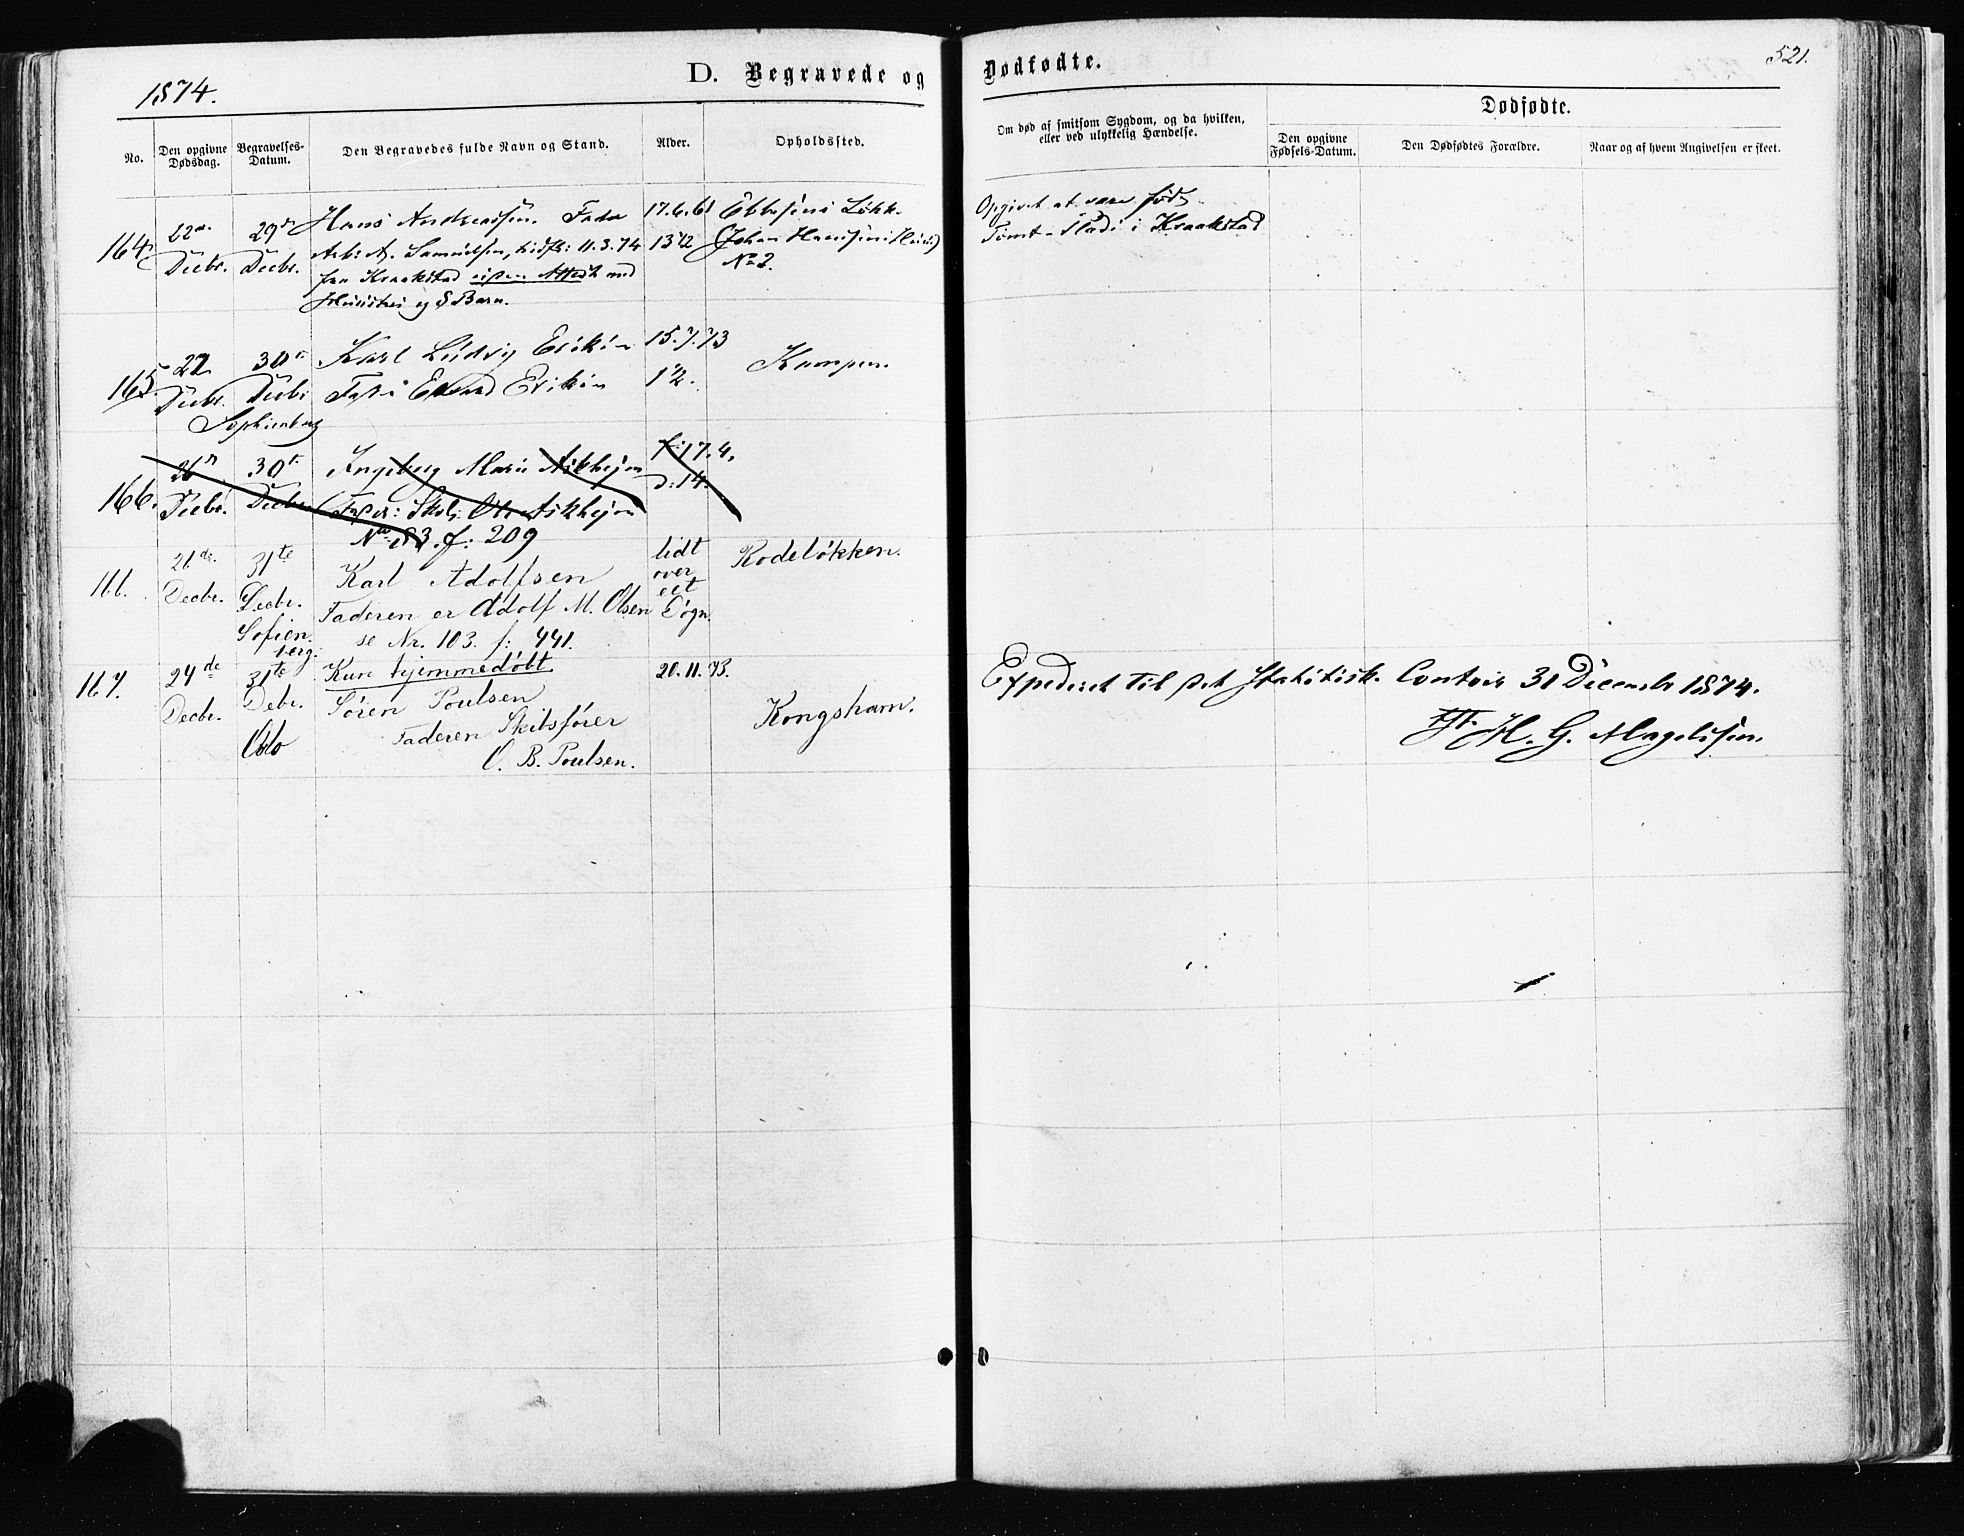 1874.
D. Begravede og
Dødfødte.
521.
No.
Den opgivne Dødsdag.
Begravelses-Datum.
Den Begravedes fulde Navn og Stand.
Alder.
Opholdssted.
Om død af smitsom Sygdom, og da hvilken, eller ved ulykkelig Hændelse.
Dødfødte.
Den opgivne Fødsels-Datum.
Den Dødfødtes Forældre.
Naar og af hvem Angivelsen er skeet.
164
22de Decbr.
29de Decbr.
Hans Andreassen. Fader
Arb: A. Samuelsen, 11.3.74
fra Kraakstad uden Attest med
Hustru og 8 Børn.
17.6.61
13 1/2
Ebbesens Løkk.
Johan Hansens Huus)
No 2.
Opgivet at være født
Tomt-Stadi i Kraakstad
165
22 Decbr.
30te Decbr.
Sophienberg
Karl Ludvig Eriksen
Fader Edvard Eriksen
15.7.73
1 1/2.
Kampen.
166.
26de Decbr.
30te Decbr.
Ingeborg Marie Askhejm
Fader: Skol: Ole Askhejm
No 83. f: 209
f: 17.4.
D: 14.
166.
21de Decbr.
31te Decbr.
Sofienberg.
Karl Adolfsen
Faderen er Adolf M. Olsen
se Nr. 103. f: 441.
lidt
over
eet
Døgn.
Rodeløkken.
167.
24de Decbr.
31te Debr.
Oslo
Kun hjemmedøbt
Søren Poulsen
Faderen Skibsfører
O. B. Poulsen.
20.11.73.
Kongshavn.
Expederet til det Statistisk. Contoir 31 December 1874.
H. G. Magelssen.